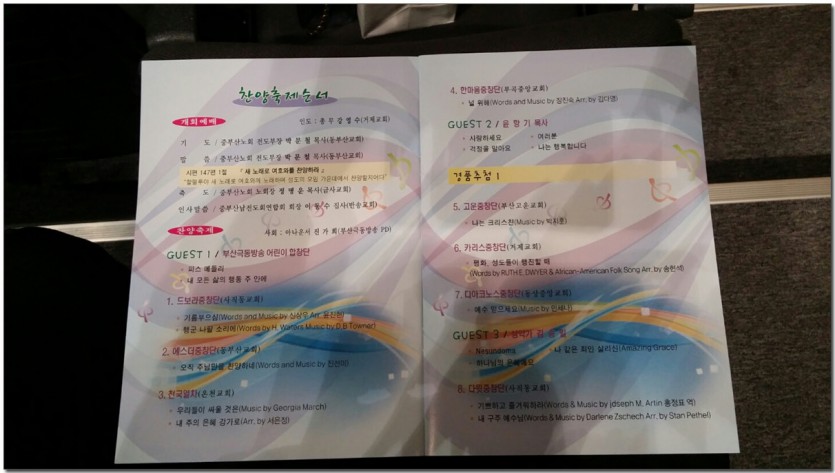 찬양축제순서
개회예배
인도 : 총 무 강 병 수(거제교회)
기 도 / 중부산노회 전도부장 박 문 철 목사(동부산교회)
말 씀 / 중부산노회 전도부장 박 문 철 목사(동부산교회)
시편 147편 1절 『 새 노래로 여호와를 찬양하라 』
축 도 / 중부산노회 노회장 정 명 운 목사(금사교회)
인사말씀 / 중부산남전도회연합회 회장 이 동 수 집사(반송교회)
찬양축제
사회 : 아나운서 전 가 희(부산극동방송 PD)
GUEST 1 / 부산극동방송 어린이 합창단
내 모든 삶의 행동 주 안에
1. 드보라중창단(사직동교회)
기름부으심(Words and Music by Arr.
행군 나팔 소리에(Words by H. Waters Music by D.B Towner)
2. 에스더중창단(동부산교회)
오직 주님만을 찬양하네(Words and Music by
3. 천국열차(온천교회)
우리들이 싸울 것은(Music by Georgia March)
내 주의 은혜 강가로(Arr. by 서은정)
4. 한마음중창단(부곡중앙교회)
널 위해(Words and Music by 정진숙 Arr. by 김다영)
GUEST 2 / 윤 항 기 목사
사랑하세요 여러분
걱정을 말아요 나는 행복합니다
경품추첨 1
5. 고운중창단(부산고운교회)
나는 크리스찬(Music by 박지훈)
6. 카리스중창단(거제교회)
평화 성도들이 행진할 때
(Words by RUTH E. DWYER & African-American Folk Song Arr. by
7. 디아코노스중창단(동상중앙교회)
예수 믿으세요(Music by
GUEST 3 /
Nessundoma 나 같은 죄인 살리신(Amazing Grace)
하나님의 은혜
8. 다윗중창단(사직동교회)
기쁘고 즐거워하라(Words & Music by jdseph M. Artin 홍정표 역)
내 구주 예수님(Words & Music by Darlene Zschech Arr. by Stan Pethel)